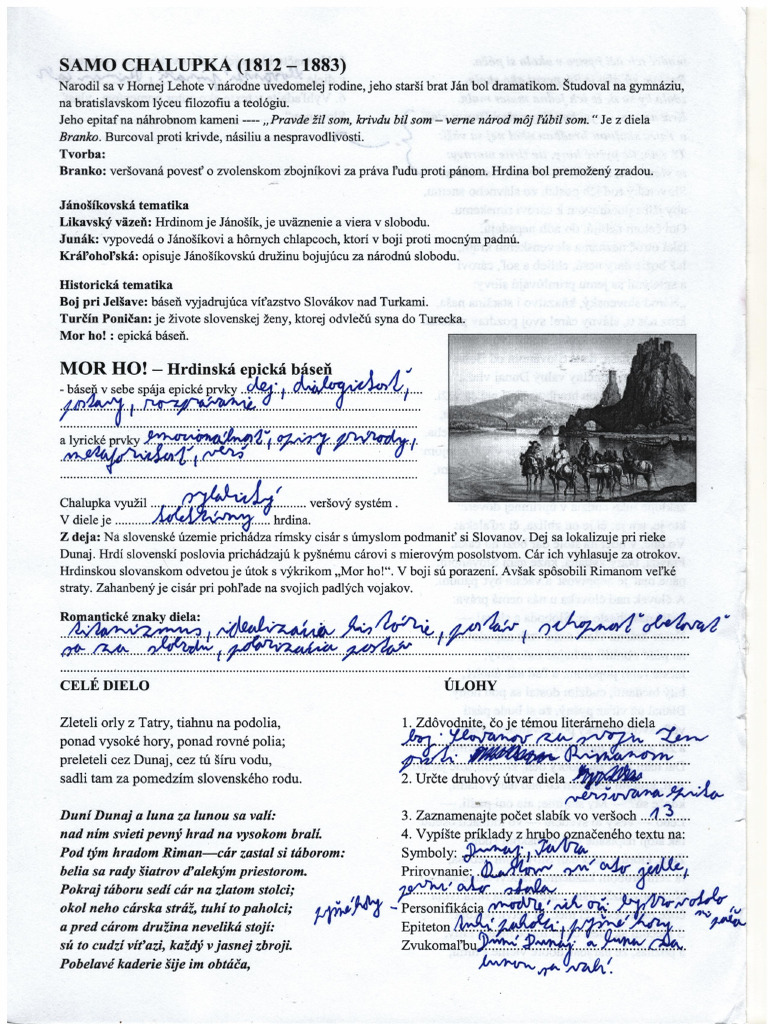 SAMO CHALUPKA (1812 – 1883)
Narodil sa v Hornej Lehote v národne uvedomelej rodine, jeho starší brat Ján bol dramatikom. Študoval na gymnáziu,
na bratislavskom lýceu filozofiu a teológiu.
Jeho epitaf na náhrobnom kameni ---- „Pravde žil som, krivdu bil som – verne národ môj ľúbil som.“ Je z diela
Branko. Burcoval proti krivde, násiliu a nespravodlivosti.
Tvorba:
Branko: veršovaná povesť o zvolenskom zbojníkovi za práva ľudu proti pánom. Hrdina bol premožený zradou.
Jánošíkovská tematika
Likavský väzeň: Hrdinom je Jánošík, je uväznenie a viera v slobodu.
Junák: vypovedá o Jánošíkovi a hôrnych chlapcoch, ktorí v boji proti mocným padnú.
Kráľohoľská: opisuje Jánošíkovskú družinu bojujúcu za národnú slobodu.
Historická tematika
Boj pri Jelšave: báseň vyjadrujúca víťazstvo Slovákov nad Turkami.
Turčín Poničan: je živote slovenskej ženy, ktorej odvlečú syna do Turecka.
Mor ho! : epická báseň.
MOR HO! – Hrdinská epická báseň
- báseň v sebe spája epické prvky dej, dialogickosť,
postavy, rozprávanie
a lyrické prvky emocionálnosť, opisy prírody,
metaforickosť, verš
Chalupka využil sylabický veršový systém .
V diele je kolektívny hrdina.
Z deja: Na slovenské územie prichádza rímsky cisár s úmyslom podmaniť si Slovanov. Dej sa lokalizuje pri rieke
Dunaj. Hrdí slovenskí poslovia prichádzajú k pyšnému cárovi s mierovým posolstvom. Cár ich vyhlasuje za otrokov.
Hrdinskou slovanskom odvetou je útok s výkrikom „Mor ho!“. V boji sú porazení. Avšak spôsobili Rimanom veľké
straty. Zahanbený je cisár pri pohľade na svojich padlých vojakov.
Romantické znaky diela:
titanizmus, idealizácia histórie, postáv, schopnosť obetovať
sa za slobodu, polarizácia postáv
CELÉ DIELO
Zleteli orly z Tatry, tiahnu na podolia,
ponad vysoké hory, ponad rovné polia;
preleteli cez Dunaj, cez tú šíru vodu,
sadli tam za pomedzím slovenského rodu.
Duní Dunaj a luna za lunou sa valí:
nad ním svieti pevný hrad na vysokom bralí.
Pod tým hradom Riman—cár zastal si táborom:
belia sa rady šiatrov ďalekým priestorom.
Pokraj táboru sedí cár na zlatom stolci;
okol neho cárska stráž, tuhí to paholci;
a pred cárom družina neveliká stojí:
sú to cudzí víťazi, každý v jasnej zbroji.
Pobelavé kaderie šije im obtáča,
ÚLOHY
1. Zdôvodnite, čo je témou literárneho diela
boj Slovanov za svoju zem
proti Rimanom
2. Určte druhový útvar diela
veršovaná epika
3. Zaznamenajte počet slabík vo veršoch 13
4. Vypíšte príklady z hrubo označeného textu na:
Symboly: Dunaj, Tatra
Prirovnanie: Rastom sú ako jedle,
pevní ako skala
Personifikácia modré ich oči bystro vokolo
si páča
Epiteton tuhí paholci, pyšné hory
pyšné hory
Zvukomaľbu Duní Dunaj a luna za
lunou sa valí